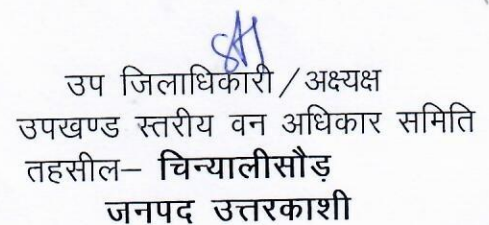 उप जिलाधिकारी/अक्ष्यक्ष
उपखण्ड स्तरीय वन अधिकार समिति
तहसील– चिन्यालीसौड़
जनपद उत्तरकाशी